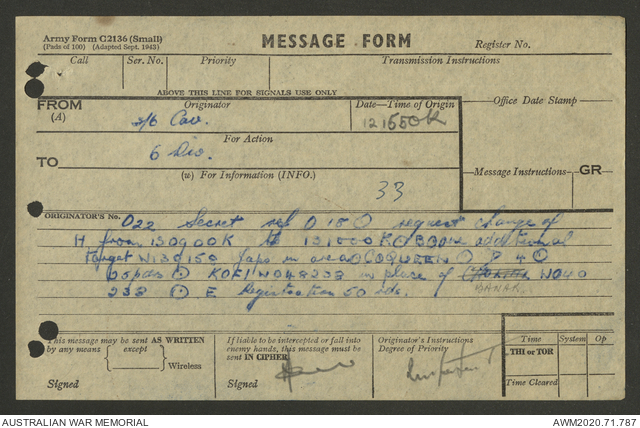 Army Form C2136 (Small)
(Pads of 100) (Adapted Sept. 1943)
MESSAGE FORM
Register No.
Call
Ser. No.
Priority
Transmission Instructions
ABOVE THIS LINE FOR SIGNALS USE ONLY
FROM
(A)
Originator
Date—Time of Origin
Office Date Stamp
2/6 Cav.
121550K
For Action
TO
6 Div.
(w) For Information (INFO.)
Message Instructions
GR
33
ORIGINATOR'S No.
O22 Secret ref O 18 request change of
H from 130900K to 131000K additional
target W139158 Japs in area COQUEEN P 4
KOFI W048238 in place of W040
KANAK
238 E Registration 50 rds.
This message may be sent AS WRITTEN
by any means
except
Wireless
Signed
If liable to be intercepted or fall into
enemy hands, this message must be
sent IN CIPHER.
Signed
Originator's Instructions
Degree of Priority
Time
System
Op
THI or TOR
Time Cleared
AUSTRALIAN WAR MEMORIAL
AWM2020.71.787